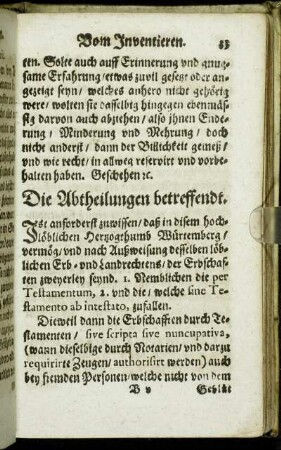 Vom Inventieren. 23
ten. Solte auch auff Erinnerung vnd gnug-
same Erfahrung / etwas zuvil gesetzt oder an-
gezeigt seyn / welches anhero nicht gehörig
were / wolten sie dasselbig hingegen ebenmäs-
sig darvon auch abziehen / also jhnen Ende-
rung / Minderung vnd Mehrung / doch
nicht anderst / dann der Billichkeit gemeß /
vnd wie recht / in allweg reservirt vnd vorbe-
halten haben. Geschehen ꝛc.
Die Abtheilungen betreffendt.
Ist anforderst zuwissen / daß in disem hoch-
löblichen Hertzogthumb Würtemberg /
vermög / vnd nach Außweisung desselben löb-
lichen Erb- vnd Landrechtens / der Erbschaf-
ten zweyerley seynd. 1. Nemblichen die per
Testamentum, 2. vnd die / welche sine Te-
stamento ab intestato, zufallen.
Dieweil dann die Erbschafften durch Te-
stamenten / sive scripta sive nuncupativa,
(wann dieselbige durch Notarien / vnd darzu
requirirte Zeugen / authorisirt werden) auch
bey fremden Personen / welche nicht von dem
B v Geblüt